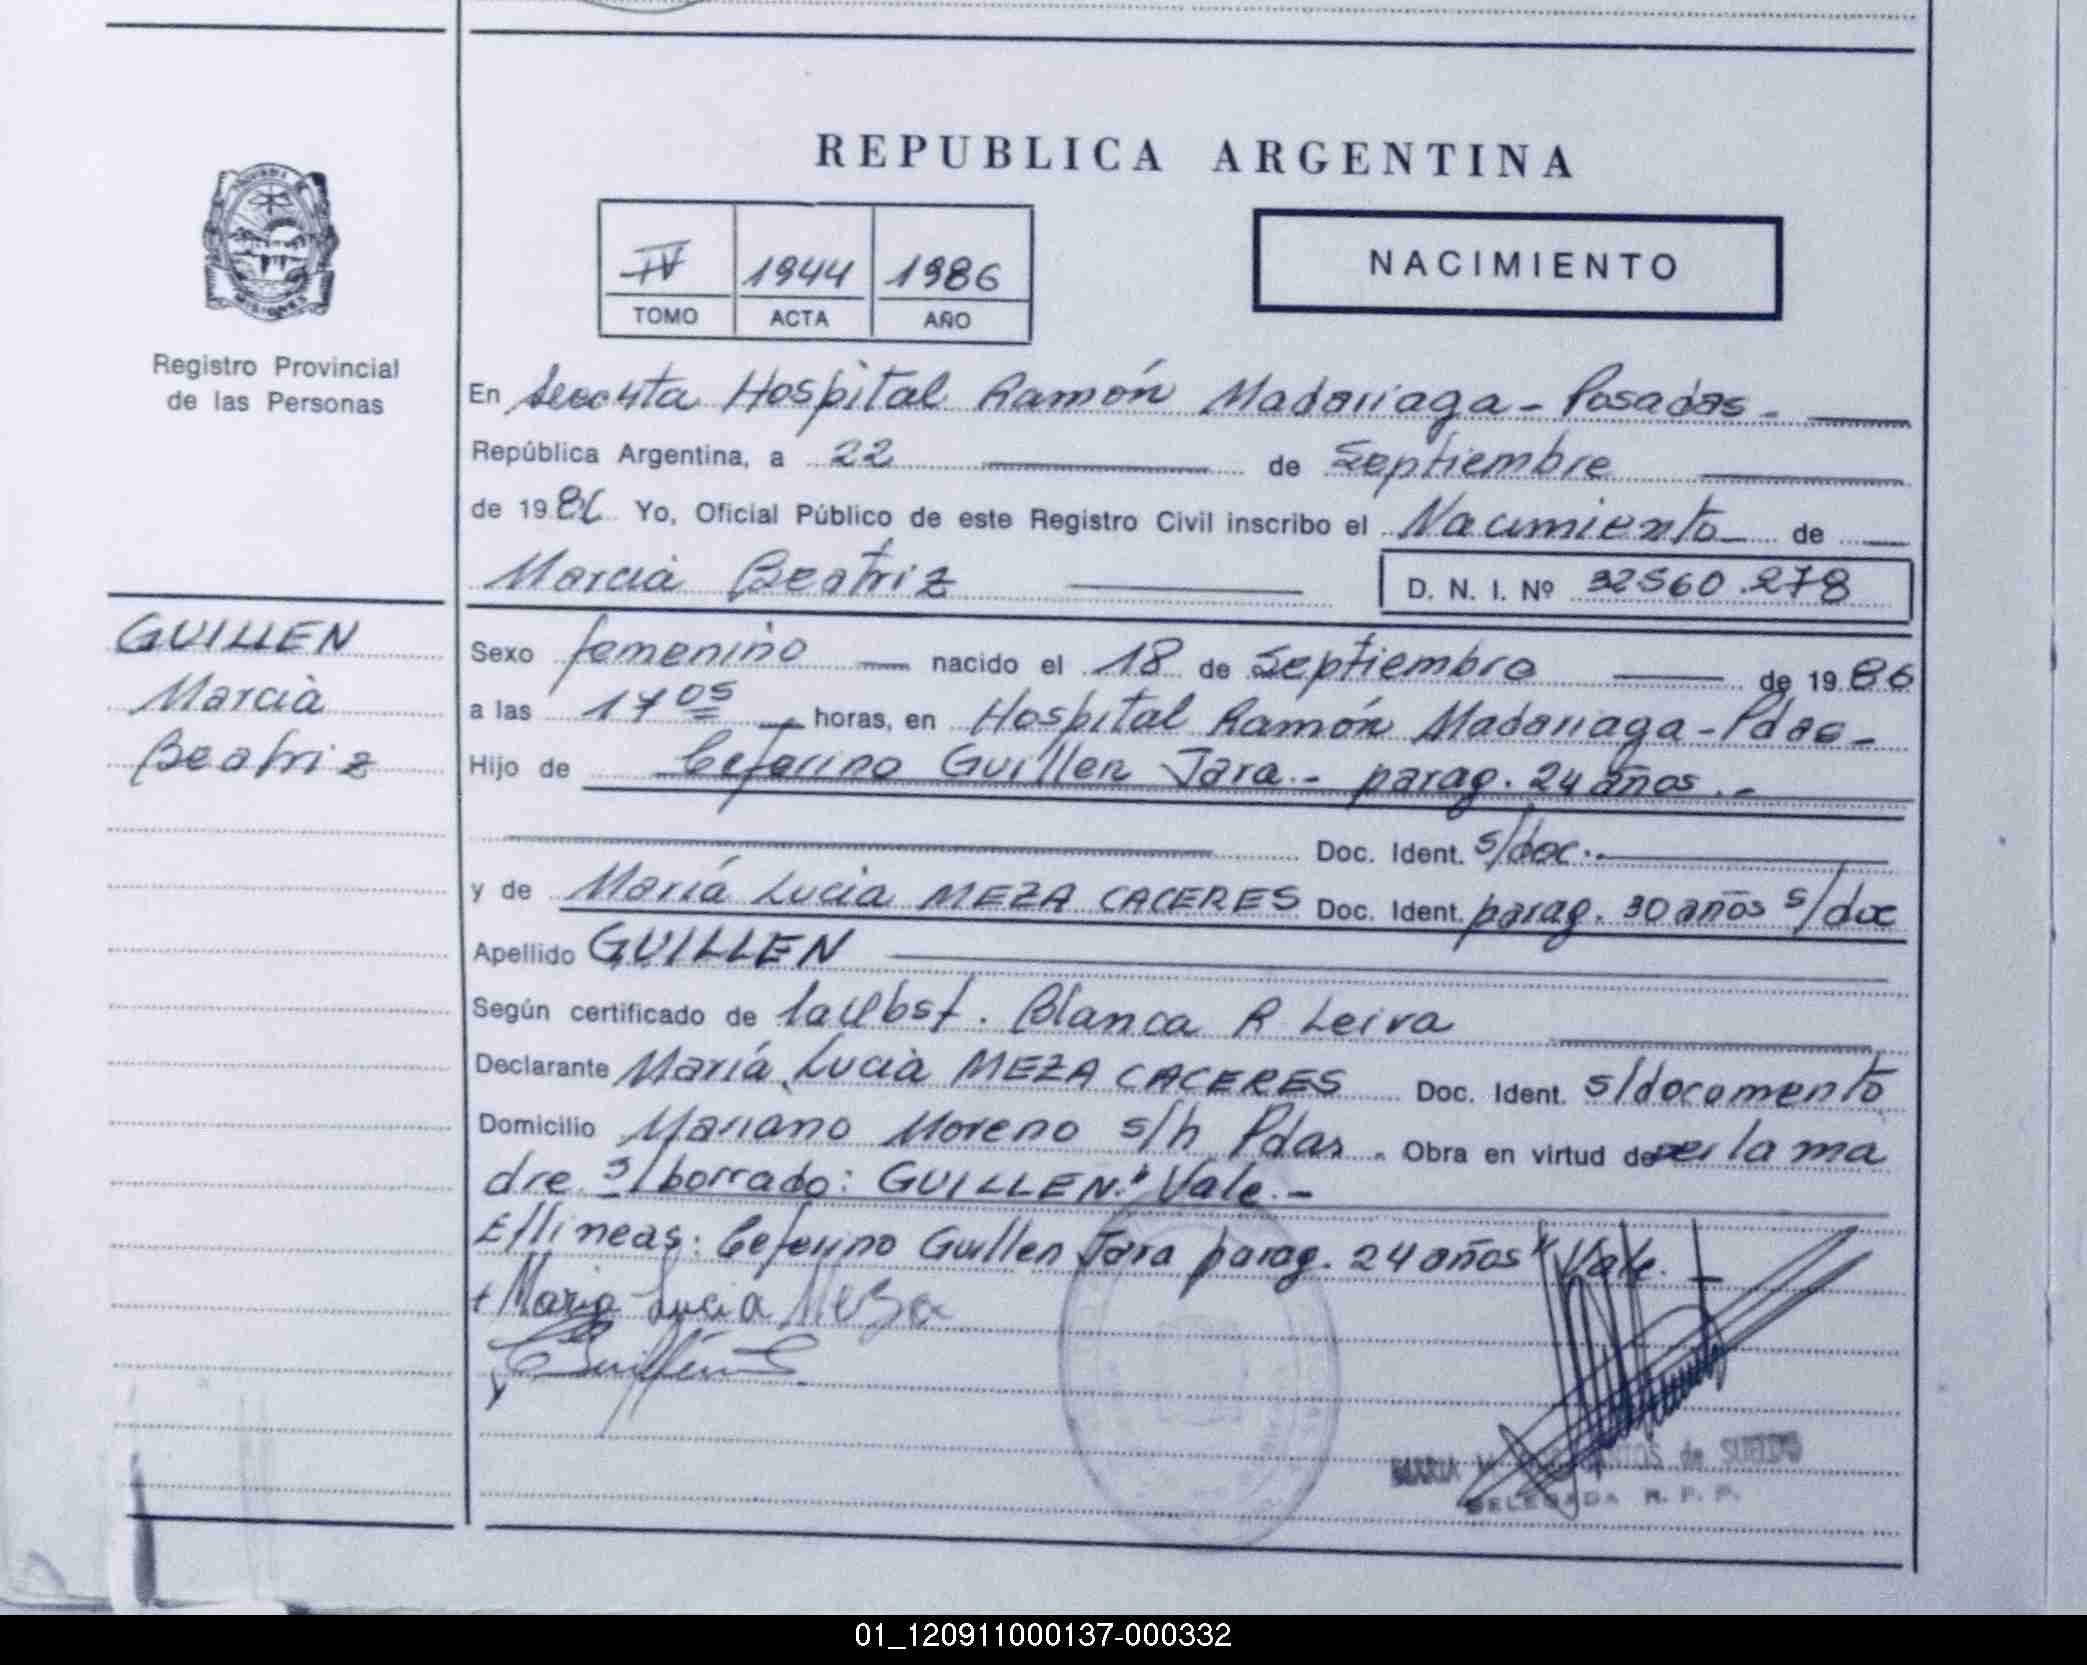 REPUBLICA ARGENTINA
IV 1944 1986
TOMO ACTA AÑO
NACIMIENTO
Registro Provincial
de las Personas
En Hospital Ramón Madariaga - Posadas -
República Argentina, a 22 de Septiembre
de 1986 Yo, Oficial Público de este Registro Civil inscribo el Nacimiento de
Marcia Beatriz D. N. I. Nº 32560.278
GUILLEN
Marcia
Beatriz
Sexo femenino nacido el 18 de Septiembre de 1986
a las 17 05 horas, en Hospital Ramón Madariaga - Pdas -
Hijo de Ceferino Guillen Jara - parag. 24 años. -
Doc. Ident. s/doc.
y de María Lucia MEZA CACERES Doc. Ident. parag. 30 años s/doc
Apellido GUILLEN
Según certificado de Blanca R Leiva
Declarante María Lucia MEZA CACERES Doc. Ident. s/documento
Domicilio Mariano Moreno s/h Pdas. Obra en virtud de ser la ma
dre s/borrado: GUILLEN" Vale. -
E/lineas: Ceferino Guillen Jara parag. 24 años" Vale. -
Maria Lucia Meza
MARIA de SUELDO
DELEGADA R. P. P.
01_120911000137-000332